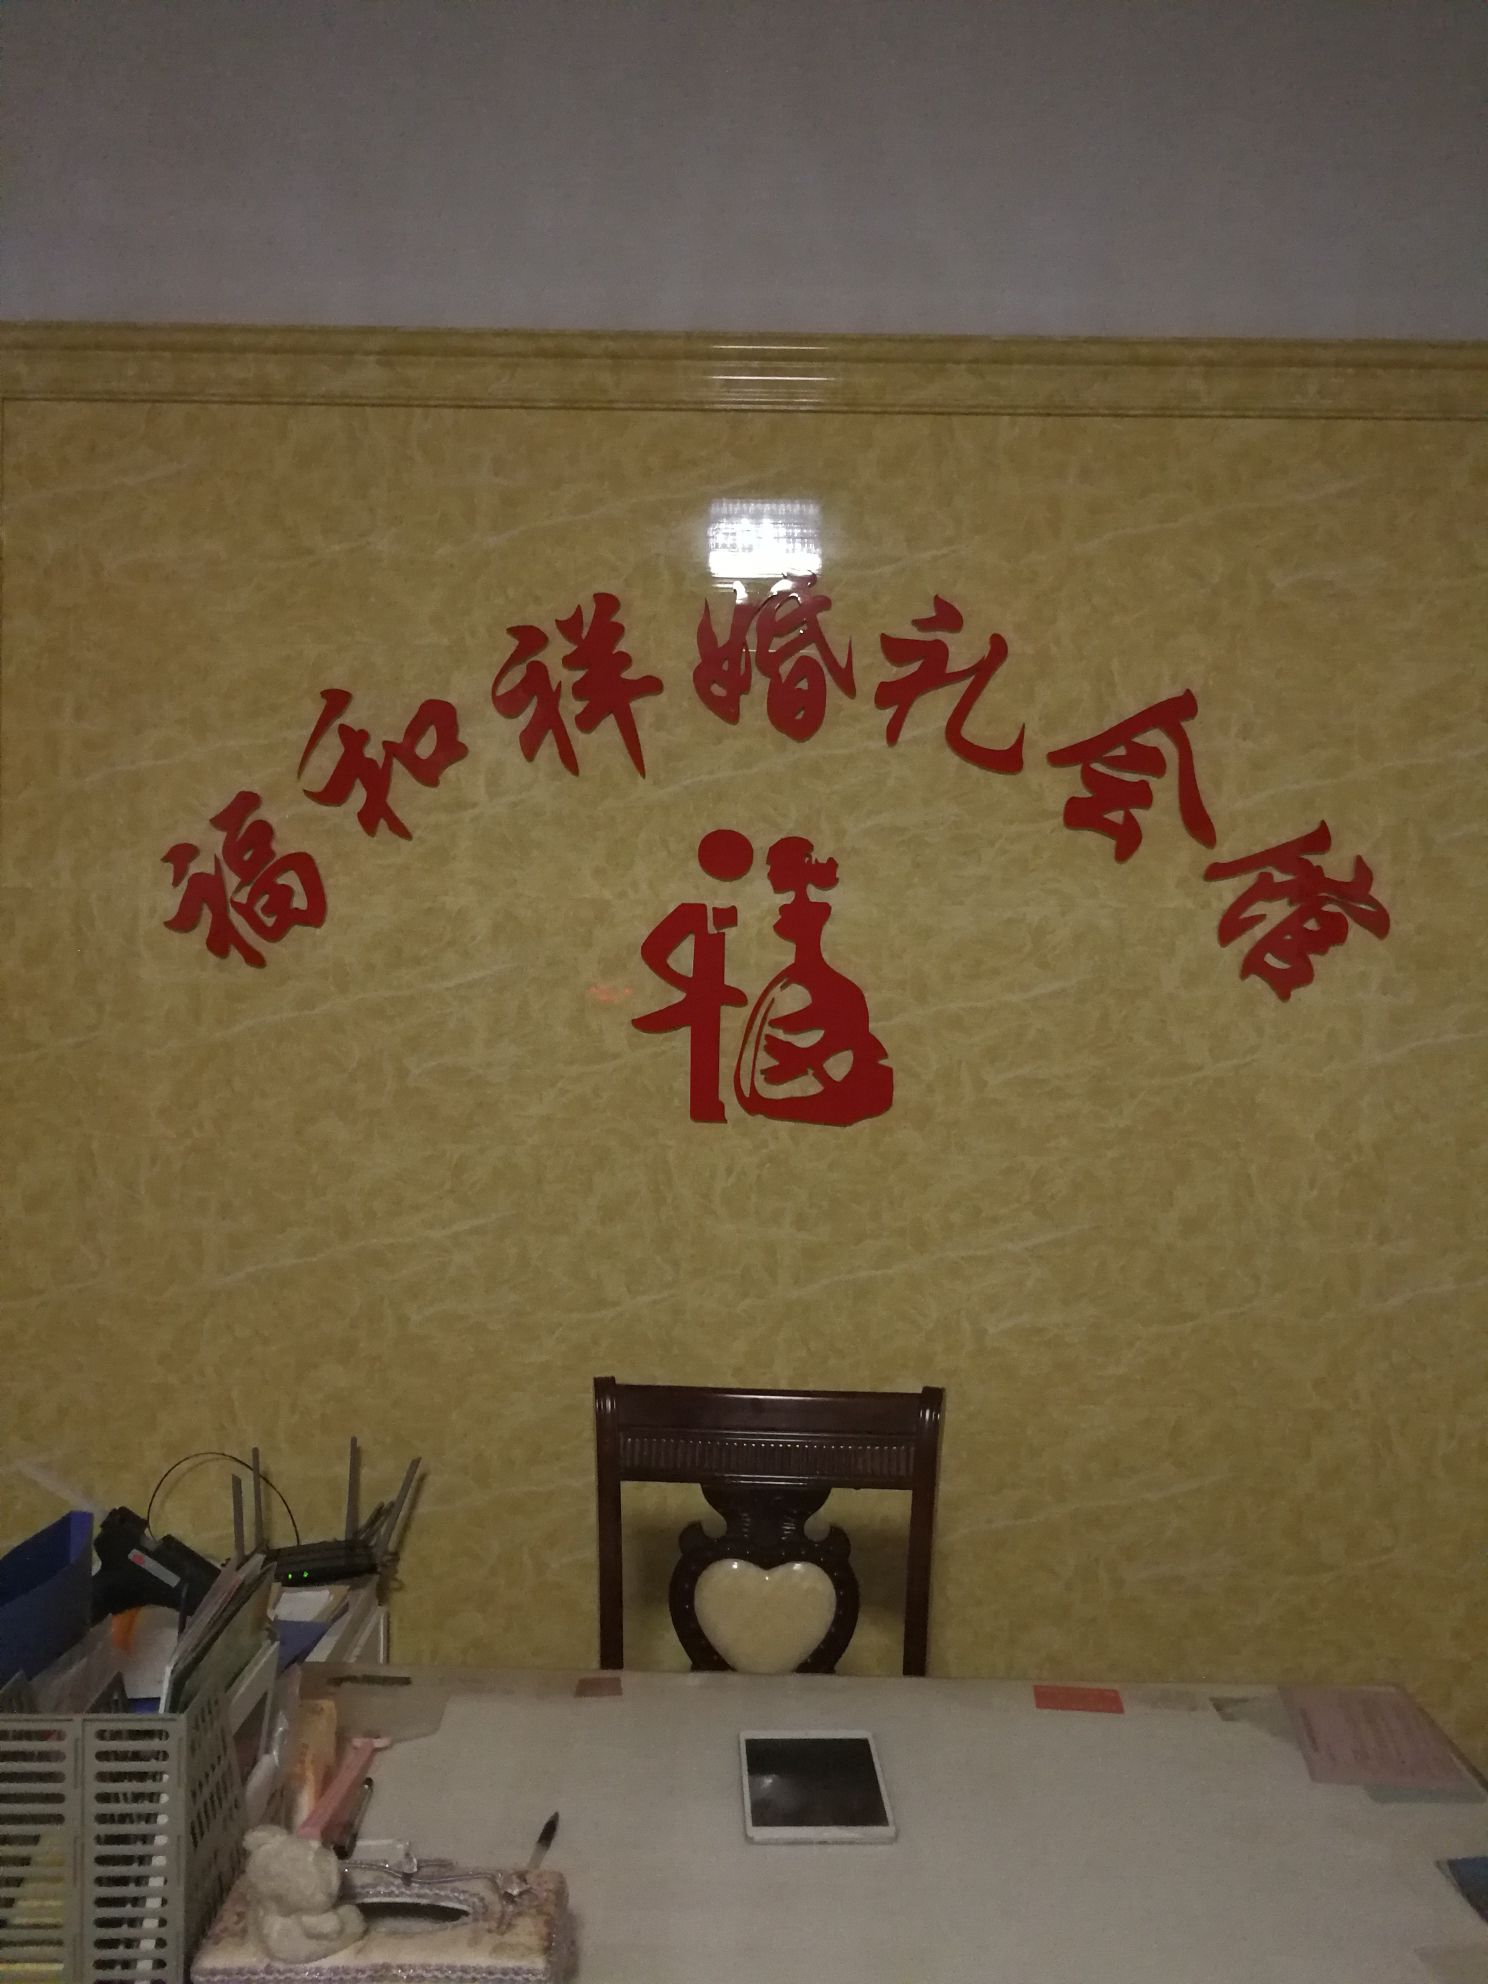 福和祥婚礼会馆
福